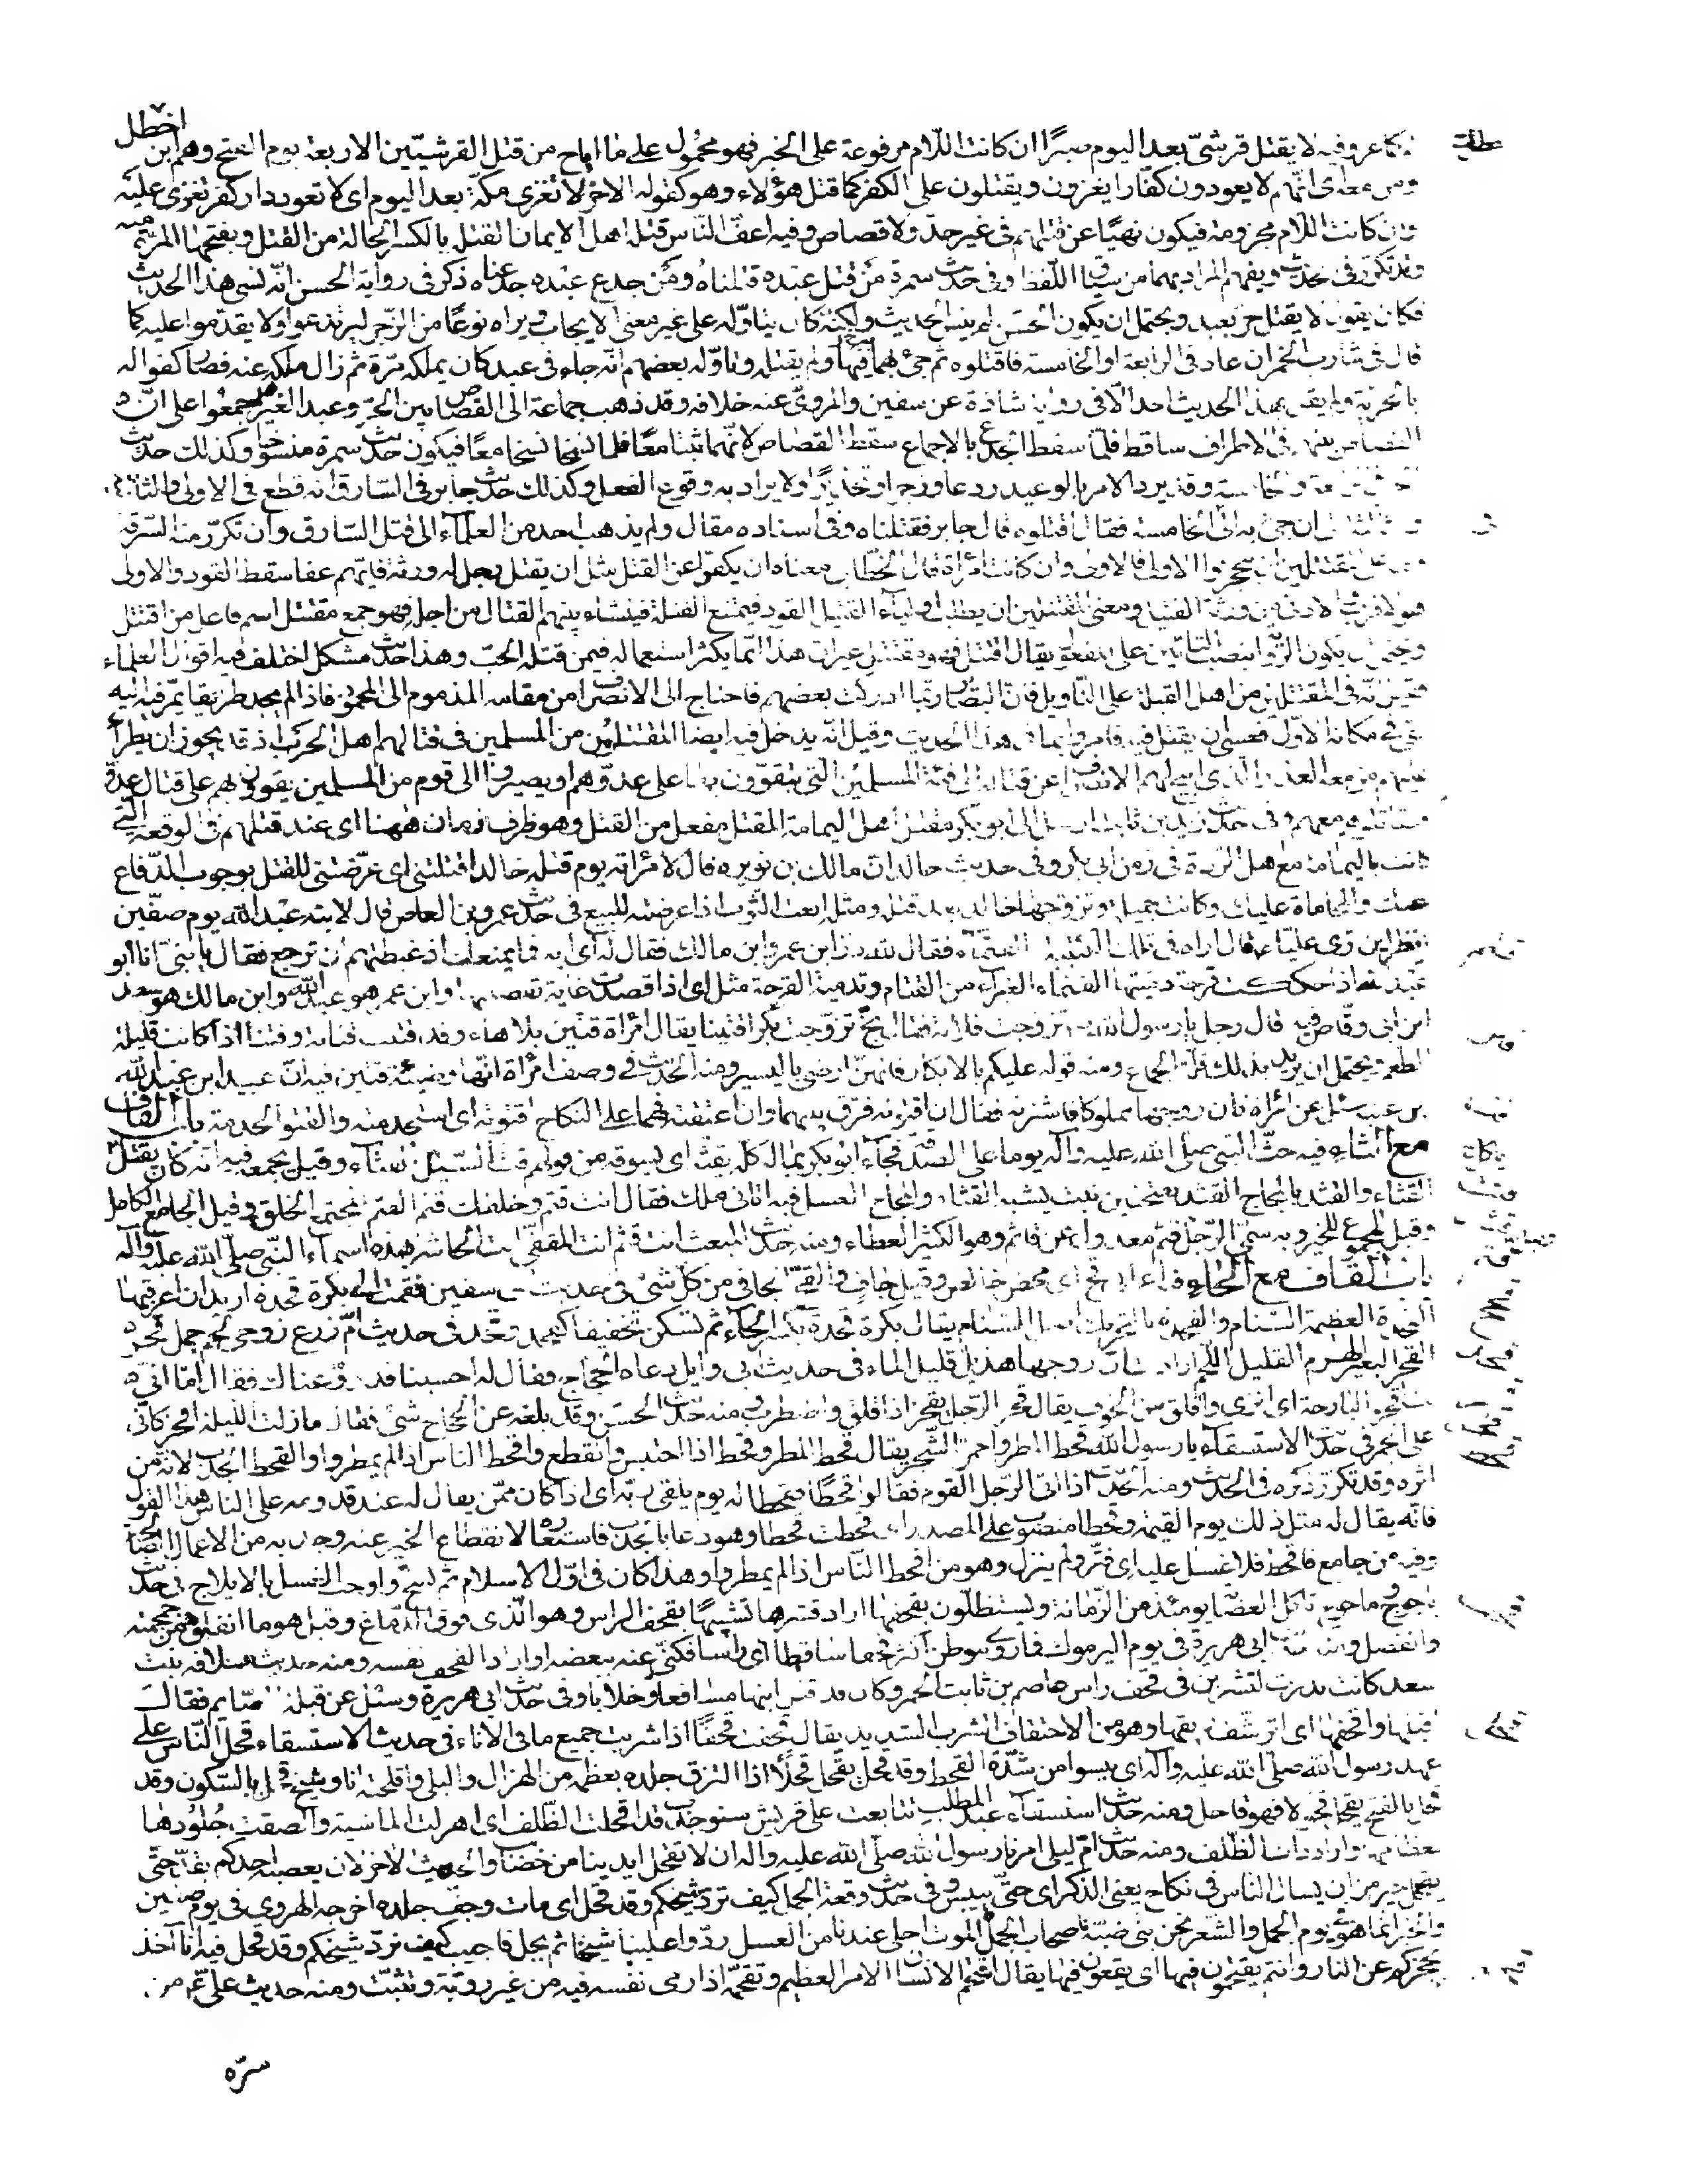 وفيه لا يقتل قرشيّ بعد اليوم صبرًا ان كانت اللّام مرفوعة على الخبر فهو محمُول على ما اباح من قتل القرشيّين الاربعة يوم الفتح وهم ابن اخطل
ومن معه اى انّهم لا يعودون كفّارا يغزون ويقتلون على الكفر كما قتل هؤلاء وهو كقوله الاخر لا تغزى مكّة بعد اليوم اى لا تعود دار كفر تغزى عليه
وان كانت اللّام مجزومة فيكون نهيًا عن قتلهم فى غير حدّ ولا قصاص وفيه اعفّ النّاس قتلة اهل الايمان القتلة بالكسر الحالة من القتل وبفتحها المرّة منه
وقد تكرّر فى الحديث ويفهم المراد بهما من سياق اللّفظ وفى حديث سمرة مَن قتل عبده قتلناهُ ومَن جدع عبده جدعناه ذكر فى رواية الحسن انّه نسى هذا الحديث
فكان يقول لا يقتل حرّ بعبد ويحتمل ان يكون الحسَن لم ينس الحديث ولكنّه كان يتاوّله على غير معنى الايجاب ويراه نوعًا من الزّجر ليرتدعوا ولا يقدموا عليه كما
قال فى شارب الخمر ان عاد فى الرّابعة او الخامسة فاقتلوه ثم جئ به فيها ولم يقتله وتاوّله بعضهم انّه جاء فى عبد كان يملكه مرّة ثم زال ملكه عنه فصار كفوا له
بالحريّة ولم يقل بهذا الحديث احد الّا فى رواية شاذة عن سفين والمروىّ عنه خلافه وقد ذهب جماعة الى القصاص بين الحرّ وعبد الغير واجمعُوا على انّ
القصاص بينهم فى الاطراف ساقط فلمّا سقط الجدع بالاجماع سقط القصاص لانّهما ثبتا معًا فلما نسخا نسخا معًا فيكون حديث سمرة منسوخا وكذلك حديث
الخمر فى الرابعة والخامسة وقد يرد الامر بالوعيد ردعا وزجرا وتحذيرًا ولا يراد به وقوع الفعل وكذلك حديث جابر فى السّارق انه قطع فى الاولى والثانية
والثالثة الى ان جئ به فى الخامسة فقال اقتلوه قال جابر فقتلناه وفى اسناده مقال ولم يذهب احد من العلمآء الى قتل السّارق وان تكرّر منه السّرقة
على المقتتلين ان ينحجزوا الاولى فالاولى وان كانت امْرأة قال الخطّابى معناه ان يكفّوا عن القتل مثل ان يقتل رجل له ورثة فايّهم عفا سقط القود والاولى
هو الاقرب والادنى من ورثة القتيل ومعنى المقتتلين ان يطلب اوليآء القتيل القود فيمتنع القتلة فينشاء بينهم القتال من اجله فهو جمع مقتتل اسم فاعل من اقتتل
ويحتمل ان يكون الرّواية بنصب التّائين على المفعول يقال اقتتل فهو مقتتل غير انّ هذا انّما يكثر استعماله فيمن قتله الحبّ وهذا حديث مشكل اختلف فيه اقوال العلماء
فقيل انّه فى المقتتلين من اهل القبلة على التّاويل فانّ البصائر ربّما ادركت بعضهم فاحتاج الى الانصراف من مقامه المذموم الى المحمود فاذا لم يجد طريقا يمرّ فيه اليه
بقى فى مكانه الاوّل فعسى ان يقتل فيه فامروا بما فى هذا الحديث وقيل انّه يدخل فيه ايضا المقتتلون من المسلمين فى قتالهم اهل الحرب اذ قد يجوز ان يطرأ
عليهم من معه العذر الّذى ابيح لهم الانصراف عن قتاله الى فئة المسلمين التى يتقوّون بها على عدوّهم او يصيروا الى قوم من المسلمين يقوون بهم على قتال عدوّهم
فيقاتلونهم معهم وفى حديث زيد بن ثابت ارسل الىّ ابو بكر مقتل اهل اليمامة المقتل مفعل من القتل وهو ظرف زمان ههنا اى عند قتلهم فى الوقعة التى
كانت باليمامة مع اهل الرّدة فى زمن ابى بكر وفى حديث خالد انّ مالك بن نويره قال لامرأته يوم قتله خالد اقتلتنى اى عرّضتنى للقتل بوجوب الدّفاع
عنك والمحاماة عليك وكانت جميلة وتزوّجها خالد بعد قتله ومثله ابعت الثّوب اذا عرضته للبيع فى حديث عمرو بن العاص قال لابنه عبْد الله يوم صفّين
انظر اين ترى عليّا قال اراه فى تلك الكتيبة القتمآء فقال لله درّ ابن عمر وابن مالك فقال له اى ابه فما يمنعك اذ غبطتهم ان ترجع فقال يا بنىّ انا ابو
عبْد الله اذا حككت قرحة دميتها القتماء الغبرآء من القتام وتدمية القرحة مثل اى اذا قصدت غاية تقصّيتها وابن عمر هو عبد الله وابن مالك هو سعد
ابن ابى وقّاص فيه قال رجل يا رسول الله تزوجت فلانة فقال بخّ تزوّجت بكرا قتينا يقال امْرأة قتين بلا هاء وقد قتنت قتانة وقتنا اذا كانت قليلة
الطعم ويحتمل ان يريد بذلك قلّة الجماع ومنه قوله عليكم بالابكار فانّهنّ ارضى باليسير ومنه الحديث فى وصف امْرأة انّها وضيئة قتين فيه انّ عبيد الله بن عبد الله
بن عتبه سئل عن امْرأة كان زوجها مملوكا فاشترته فقال ان اقتوته فرّق بينهما وان اعتقته فهما على النّكاح اقتوته اى استخدمته والقتو الخدمة باب القاف
مع الثاء فيه حثّ النّبى صلّى الله عليه وآله يوما على الصّدقة فجآء ابُو بكر بماله كلّه يقثّه اى يسوقه من قولهم قثّ السّيل الغثآء وقيل يجمعه فيه انّه كان ياكل
القثّاء والقثد بالمجاج القثد بفتحتين نبت يشبه القثّاء والمجاج العسل فيه اتانى ملك فقال انت قثم وخلقك قثم القثم المجتمع الخلق وقيل الجامع الكامل
وقيل الجموع للخير وبه سمّى الرّجل قثم معدول عن قاثم وهو الكثير العطاء ومنه حديث المبعث انت قثم انت المقفّى انت الحاشر هذه اسمآء للنّبى صلّى الله عليه وآله
باب القاف مع الحآء
القحدة العظيمة السّنام والقحدة بالتّحريك اصل السّنام يقال بكرة قحدة بكسر الحآء ثم تسكن تخفيفا كفخذ وفخذ فى حديث امّ زرع زوجى لحم جمل قحر
القحر البعير الهرم القليل اللّحم ارادت انّ زوجها هزيل قليل الماء فى حديث ابى وايل دعاه الحجّاج فقال له احسبنا قد روّعناك فقال امّا انّى
بتّ اقحّز البارحة اى انزى واقلق من الخوف يقال قحز الرّجل يقحز اذا قلق واضطرب ومنه حديث الحسَن وقد بلغه عن الحجّاج شئ فقال ما زلت اللّيلة اقحز كانّى
على الجمر فى حديث الاستسقآء يا رسول الله قحط المطر واحمرّ الشّجر يقال قحط المطر وقحط اذا احتبس وانقطع واقحط الناس اذا لم يمطروا والقحط الجدب لانّه من
اثره وقد تكرّر ذكره فى الحديث ومنه الحديث اذا اتى الرّجل القوم فقالوا قحطًا فقحطا له يوم يلقى ربّه اى اذا كان ممّن يقال له عند قدومه على النّاس هذا القول
فانّه يقال له مثل ذلك يوم القيمة وقحطا منصوب على المصدر اى قحطت قحطا وهو دعا بالجدب فاستعاره لانقطاع الخير عنه وجدبه من الاعمال الصّالحة
وفيه من جامع فاقحط فلا غسل عليه اى فتّر ولم ينزل وهو من اقحط النّاس اذا لم يمطروا وهذا كان فى اوّل الاسلام ثم نسخ واوجب الغسل بالايلاج فى حديث
ياجوج وماجوج تاكل العصابة يومئذ من الرّمّانة ويستظلّون بقحفها اراد قشرها تشبيهًا بقحف الراس وهو الّذى فوق الدّماغ وقيل هو ما انفلق من جمجمته
وانفصل ومنه حديث ابى هريرة فى يوم اليرموك فما رؤى موطن اكثر قحفا ساقطا اى راسا فكنّى عنه ببعضه او اراد القحف نفسه ومنه حديث سلافه بنت
سعد كانت نذرت لتشربن فى قحف راس عاصم بن ثابت الخمر وكان قد قتل ابنيها مسافعا وخلابا وفى حديث ابى هريرة وسئل عن قبلة الصّايم فقال
اقبلها واقحفها اى اترشّف ريقها وهو من الاقتحاف الشرب الشديد يقال قحفت قحفًا اذا شربت جميع ما فى الاناء فى حديث الاستسقاء قحل النّاس على
عهد رسول الله صلّى الله عليه وآله اى يبسوا من شدّة القحط وقد قحل يقحل قحلًا اذا التزق جلده بعظمه من الهزال والبلى واقحلته انا وشيخ قحل بالسّكون وقد
قحل بالفتح يقحل قحولا فهو قاحل ومنه حديث استسقآء عبد المطّلب تتابعت على قريش سنو جدب قد اقحلت الظّلف اى اهزلت الماشية والصقت جُلوُدها
بعظامها واراد ذات الظّلف ومنه حديث امّ ليلى امرنا رسول الله صلّى الله عليه واله ان لا نقحل ايدينا من خضاب والحديث الاخر لان يعصبه احدكم بقدّ حتّى
يقحل خير من ان يسال النّاس فى نكاح يعنى الذّكر اى حتّى ييبس وفى حديث وقعة الجمل كيف نردّ شيخكم وقد قحل اى مات وجفّ جلده اخرجه الهروى فى يوم صفّين
والخبر انّما هو يوم الجمل والشعر نحن بنى ضبّة اصحاب الجمل الموت احلى عندنا من العسل ردّوا علينا شيخنا ثم بجل فاجيب كيف نردّ شيخكم وقد قحل فيه انا آخذ
بحجزكم عن النار وانتم تقتحمون فيها اى تقعون فيها يقال اقتحم الانسان الامر العظيم وتقحّمه اذا رمى نفسه فيه من غير رويّة وتثبّت ومنه حديث علىّ من
سرّه